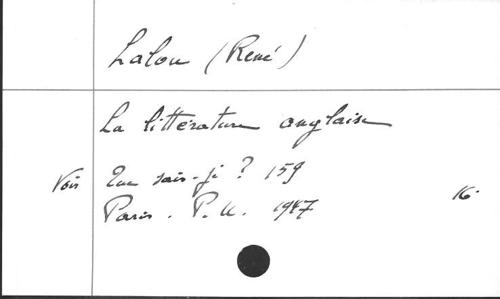 Lalou (René)
La littérature anglaise
Voir Que sais-je ? 159
Paris. P.U. 1947
16°